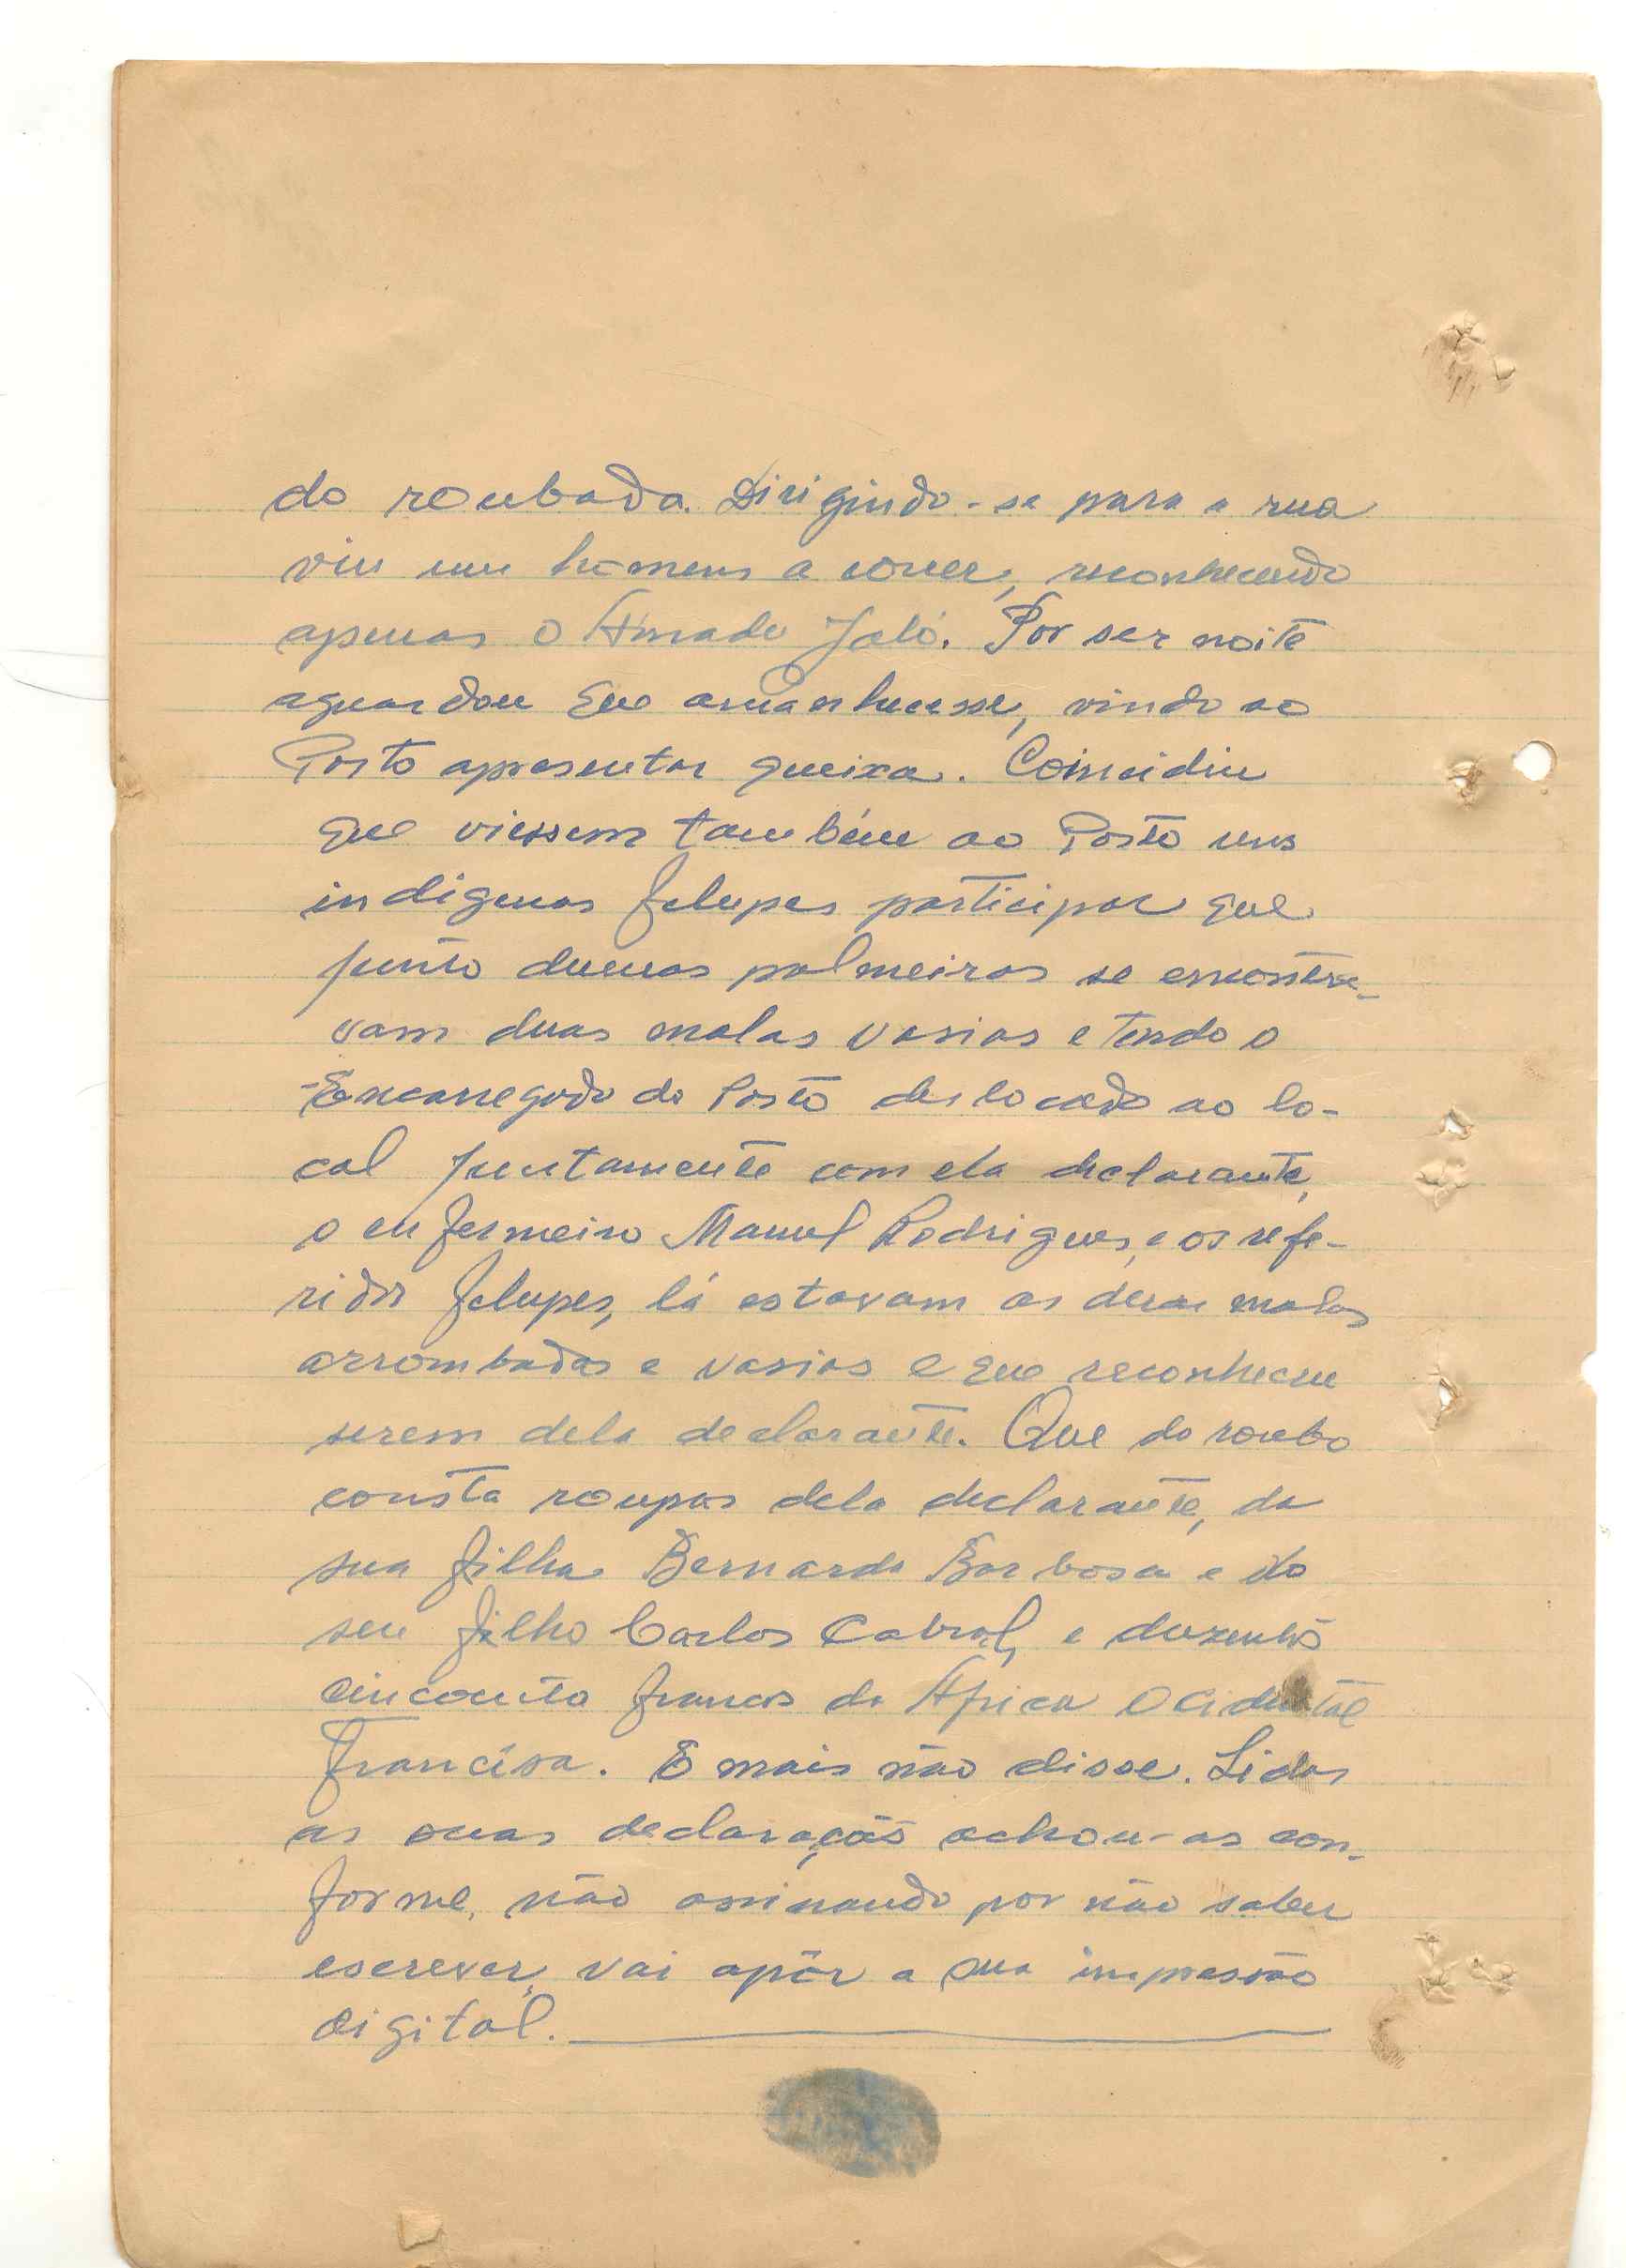 do roubada. Dirigindo-se para a rua
viu uns homens a correr, reconhecendo
apenas o Amadu Jaló. Por ser noite
aguardou que amanhecesse, vindo ao
Posto apresentar queixa. Coincidiu
que viessem também ao Posto uns
indigenas felupes participar que
junto dumas palmeiras se encontra-
vam duas malas vasias e tendo o
Encarregado do Posto deslocado ao lo-
cal juntamente com ela declarante,
o enfermeiro Manuel Rodrigues, e os refe-
ridos felupes, lá estavam as duas malas
arrombadas e vasias e que reconheceu
serem dela declarante. Que do roubo
consta roupas dela declarante, da
sua filha Bernarda Barbosa e do
seu filho Carlos Cabral, e duzentos
cincoenta francos da Africa Ocidental
Francêsa. E mais não disse. Lidas
as suas declarações achou-as con-
forme, não assinando por não saber
escrever, vai apôr a sua impressão
digital.